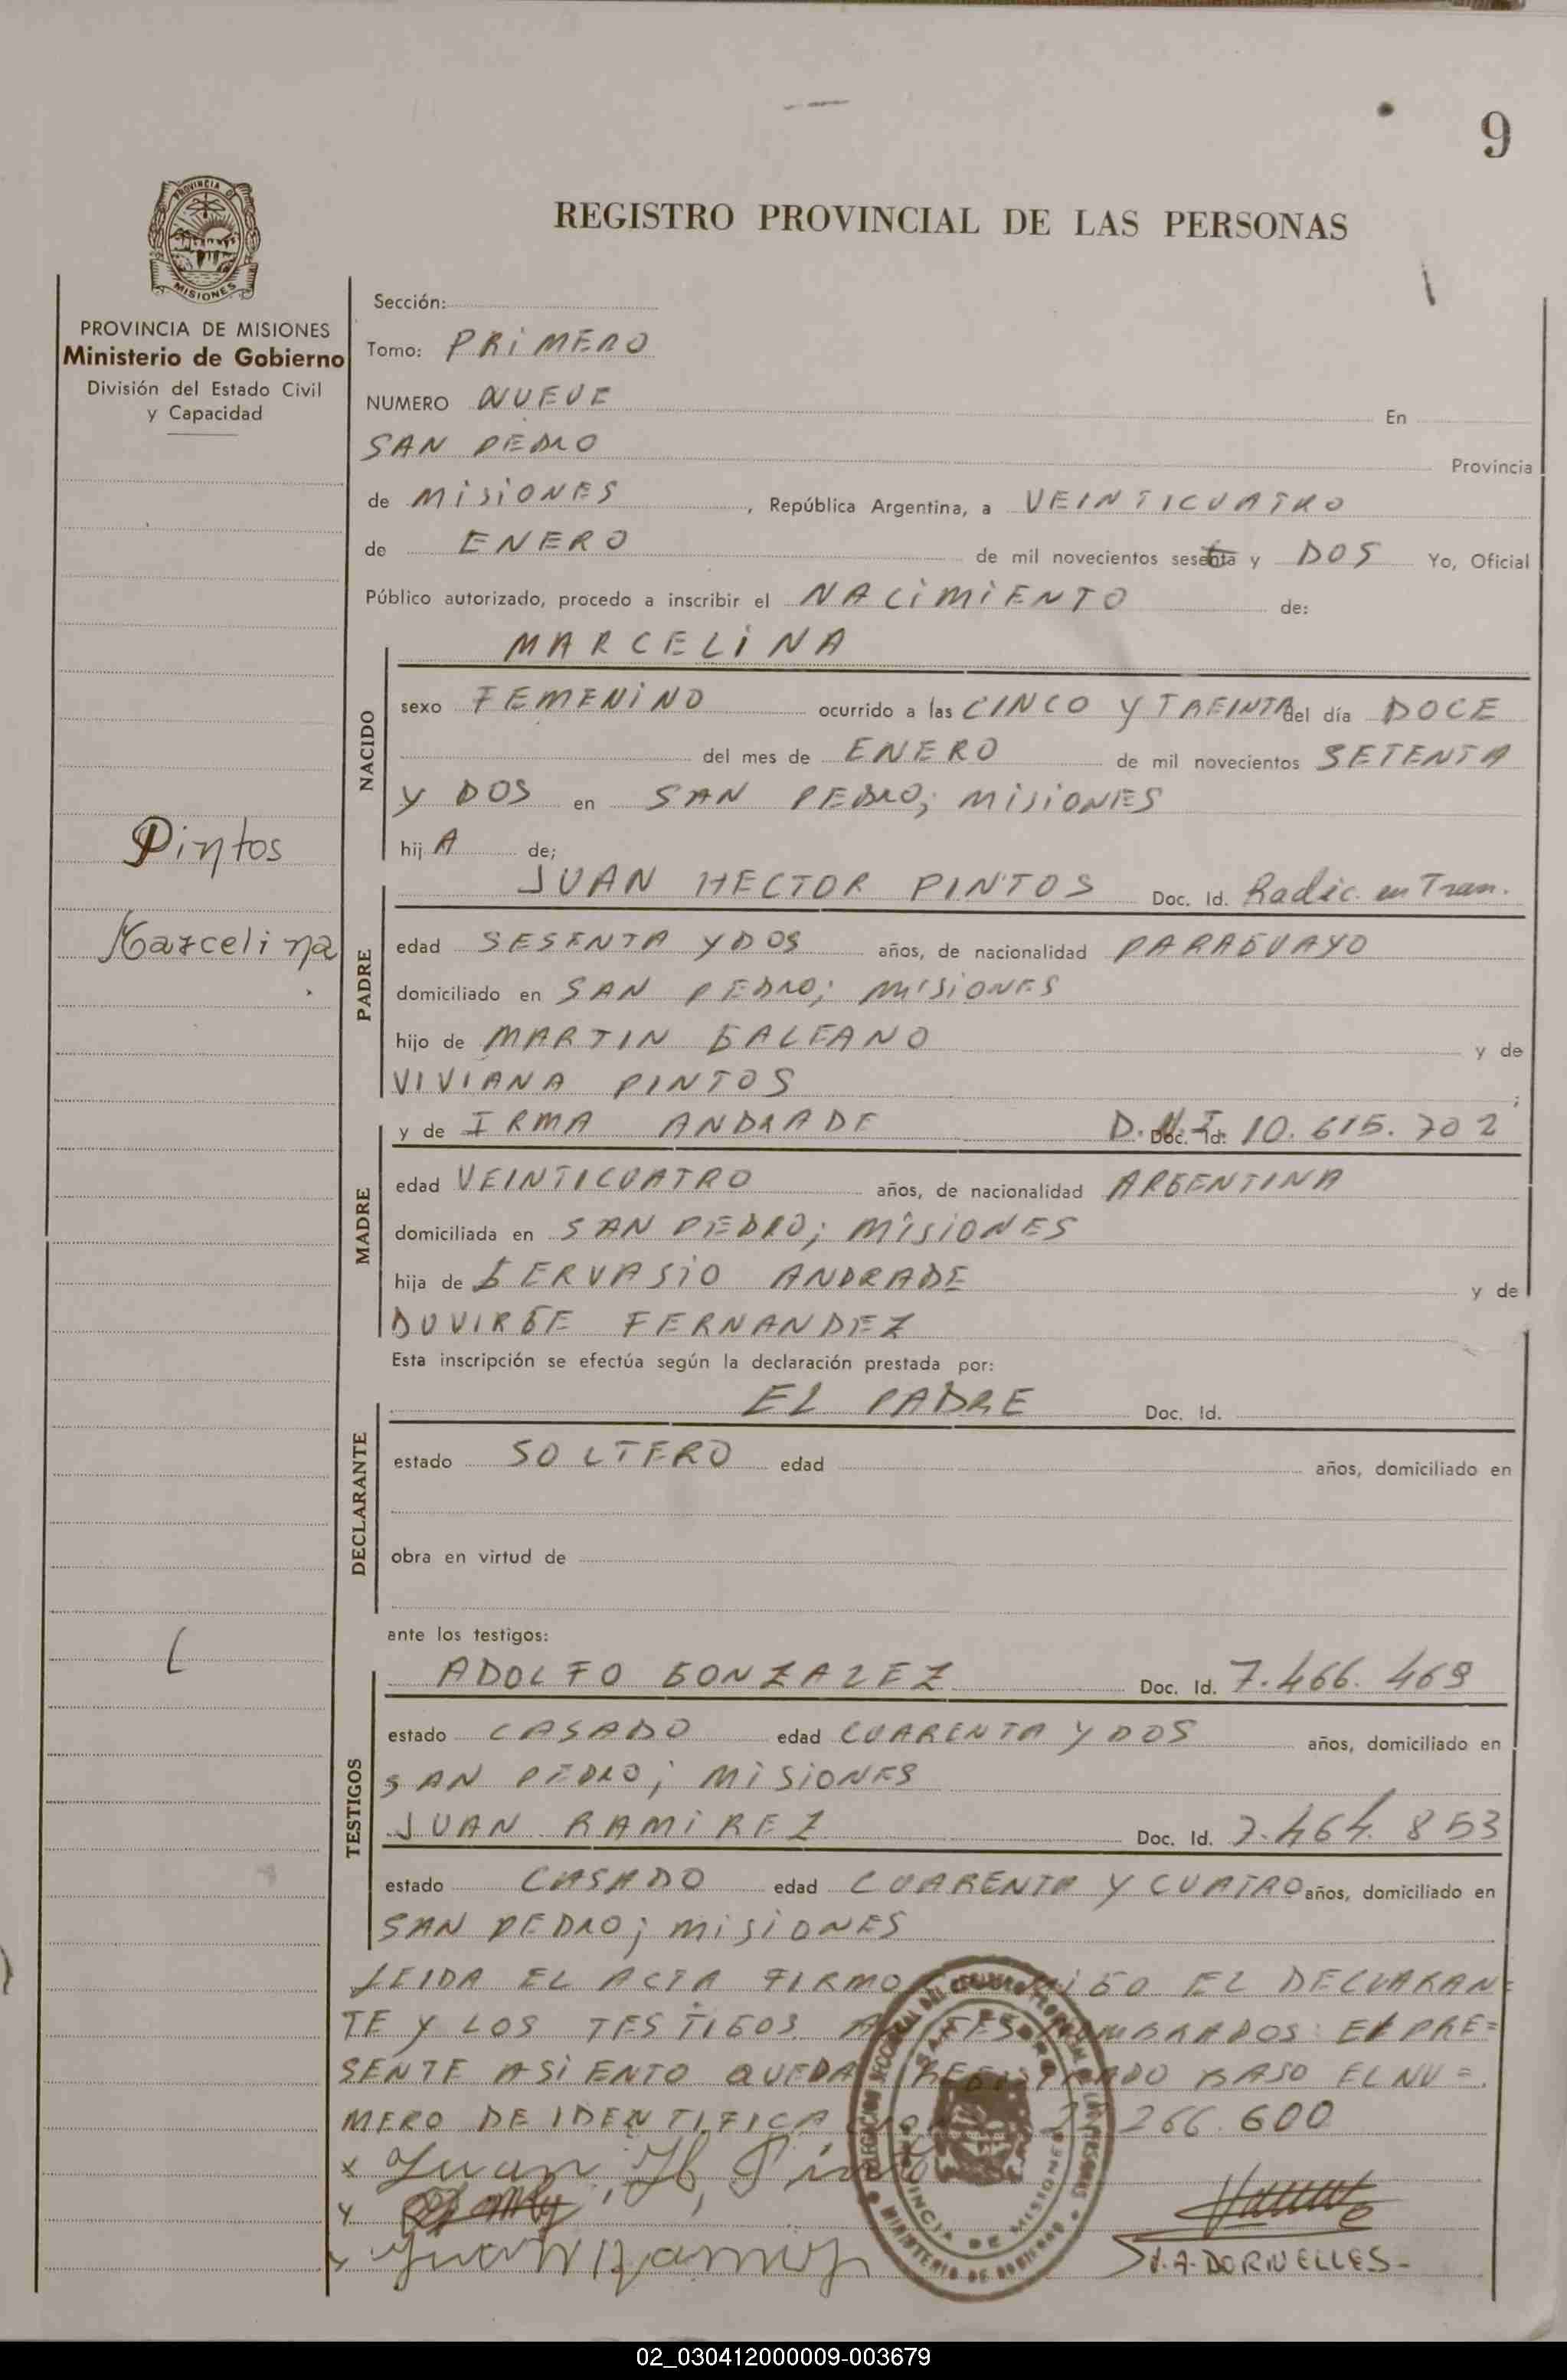 9
REGISTRO PROVINCIAL DE LAS PERSONAS
PROVINCIA DE
MISIONES
PROVINCIA DE MISIONES
Ministerio de Gobierno
División del Estado Civil
y Capacidad
Pintos
Marcelina
Sección:
Tomo: PRIMERO
NUMERO NUEVE En
SAN PEDRO Provincia
de MISIONES, República Argentina, a VEINTICUATRO
de ENERO de mil novecientos setenta y DOS Yo, Oficial
Público autorizado, procedo a inscribir el NACIMIENTO de:
NACIDO
MARCELINA
sexo FEMENINO ocurrido a las CINCO Y TREINTA del día DOCE
del mes de ENERO de mil novecientos SETENTA
Y DOS en SAN PEDRO; MISIONES
hij A de;
PADRE
JUAN HECTOR PINTOS Doc. Id. Radic. en Tram.
edad SESENTA Y DOS años, de nacionalidad PARAGUAYO
domiciliado en SAN PEDRO; MISIONES
hijo de MARTIN GALEANO y de
VIVIANA PINTOS ;
MADRE
y de IRMA ANDRADE D.N.I. Doc. Id. 10.615.702
edad VEINTICUATRO años, de nacionalidad ARGENTINA
domiciliada en SAN PEDRO; MISIONES
hija de GERVASIO ANDRADE y de
DUVIRGE FERNANDEZ
Esta inscripción se efectúa según la declaración prestada por:
DECLARANTE
EL PADRE Doc. Id.
estado SOLTERO edad años, domiciliado en
obra en virtud de
ante los testigos:
TESTIGOS
ADOLFO GONZALEZ Doc. Id. 7.466.469
estado CASADO edad CUARENTA Y DOS años, domiciliado en
SAN PEDRO; MISIONES
JUAN RAMIREZ Doc. Id. 7.464.853
estado CASADO edad CUARENTA Y CUATRO años, domiciliado en
SAN PEDRO; MISIONES
LEIDA EL ACTA FIRMO CONMIGO EL DECLARAN=
TE Y LOS TESTIGOS ANTES NOMBRADOS: EL PRE=
SENTE ASIENTO QUEDA REGISTRADO BAJO EL NU=
MERO DE IDENTIFICACION 266.600
x Juan H. Pintos
Juan Ramirez
DORNELLES-
SAN PEDRO
PROVINCIA DE MISIONES
MINISTERIO DE GOBIERNO
02_030412000009-003679